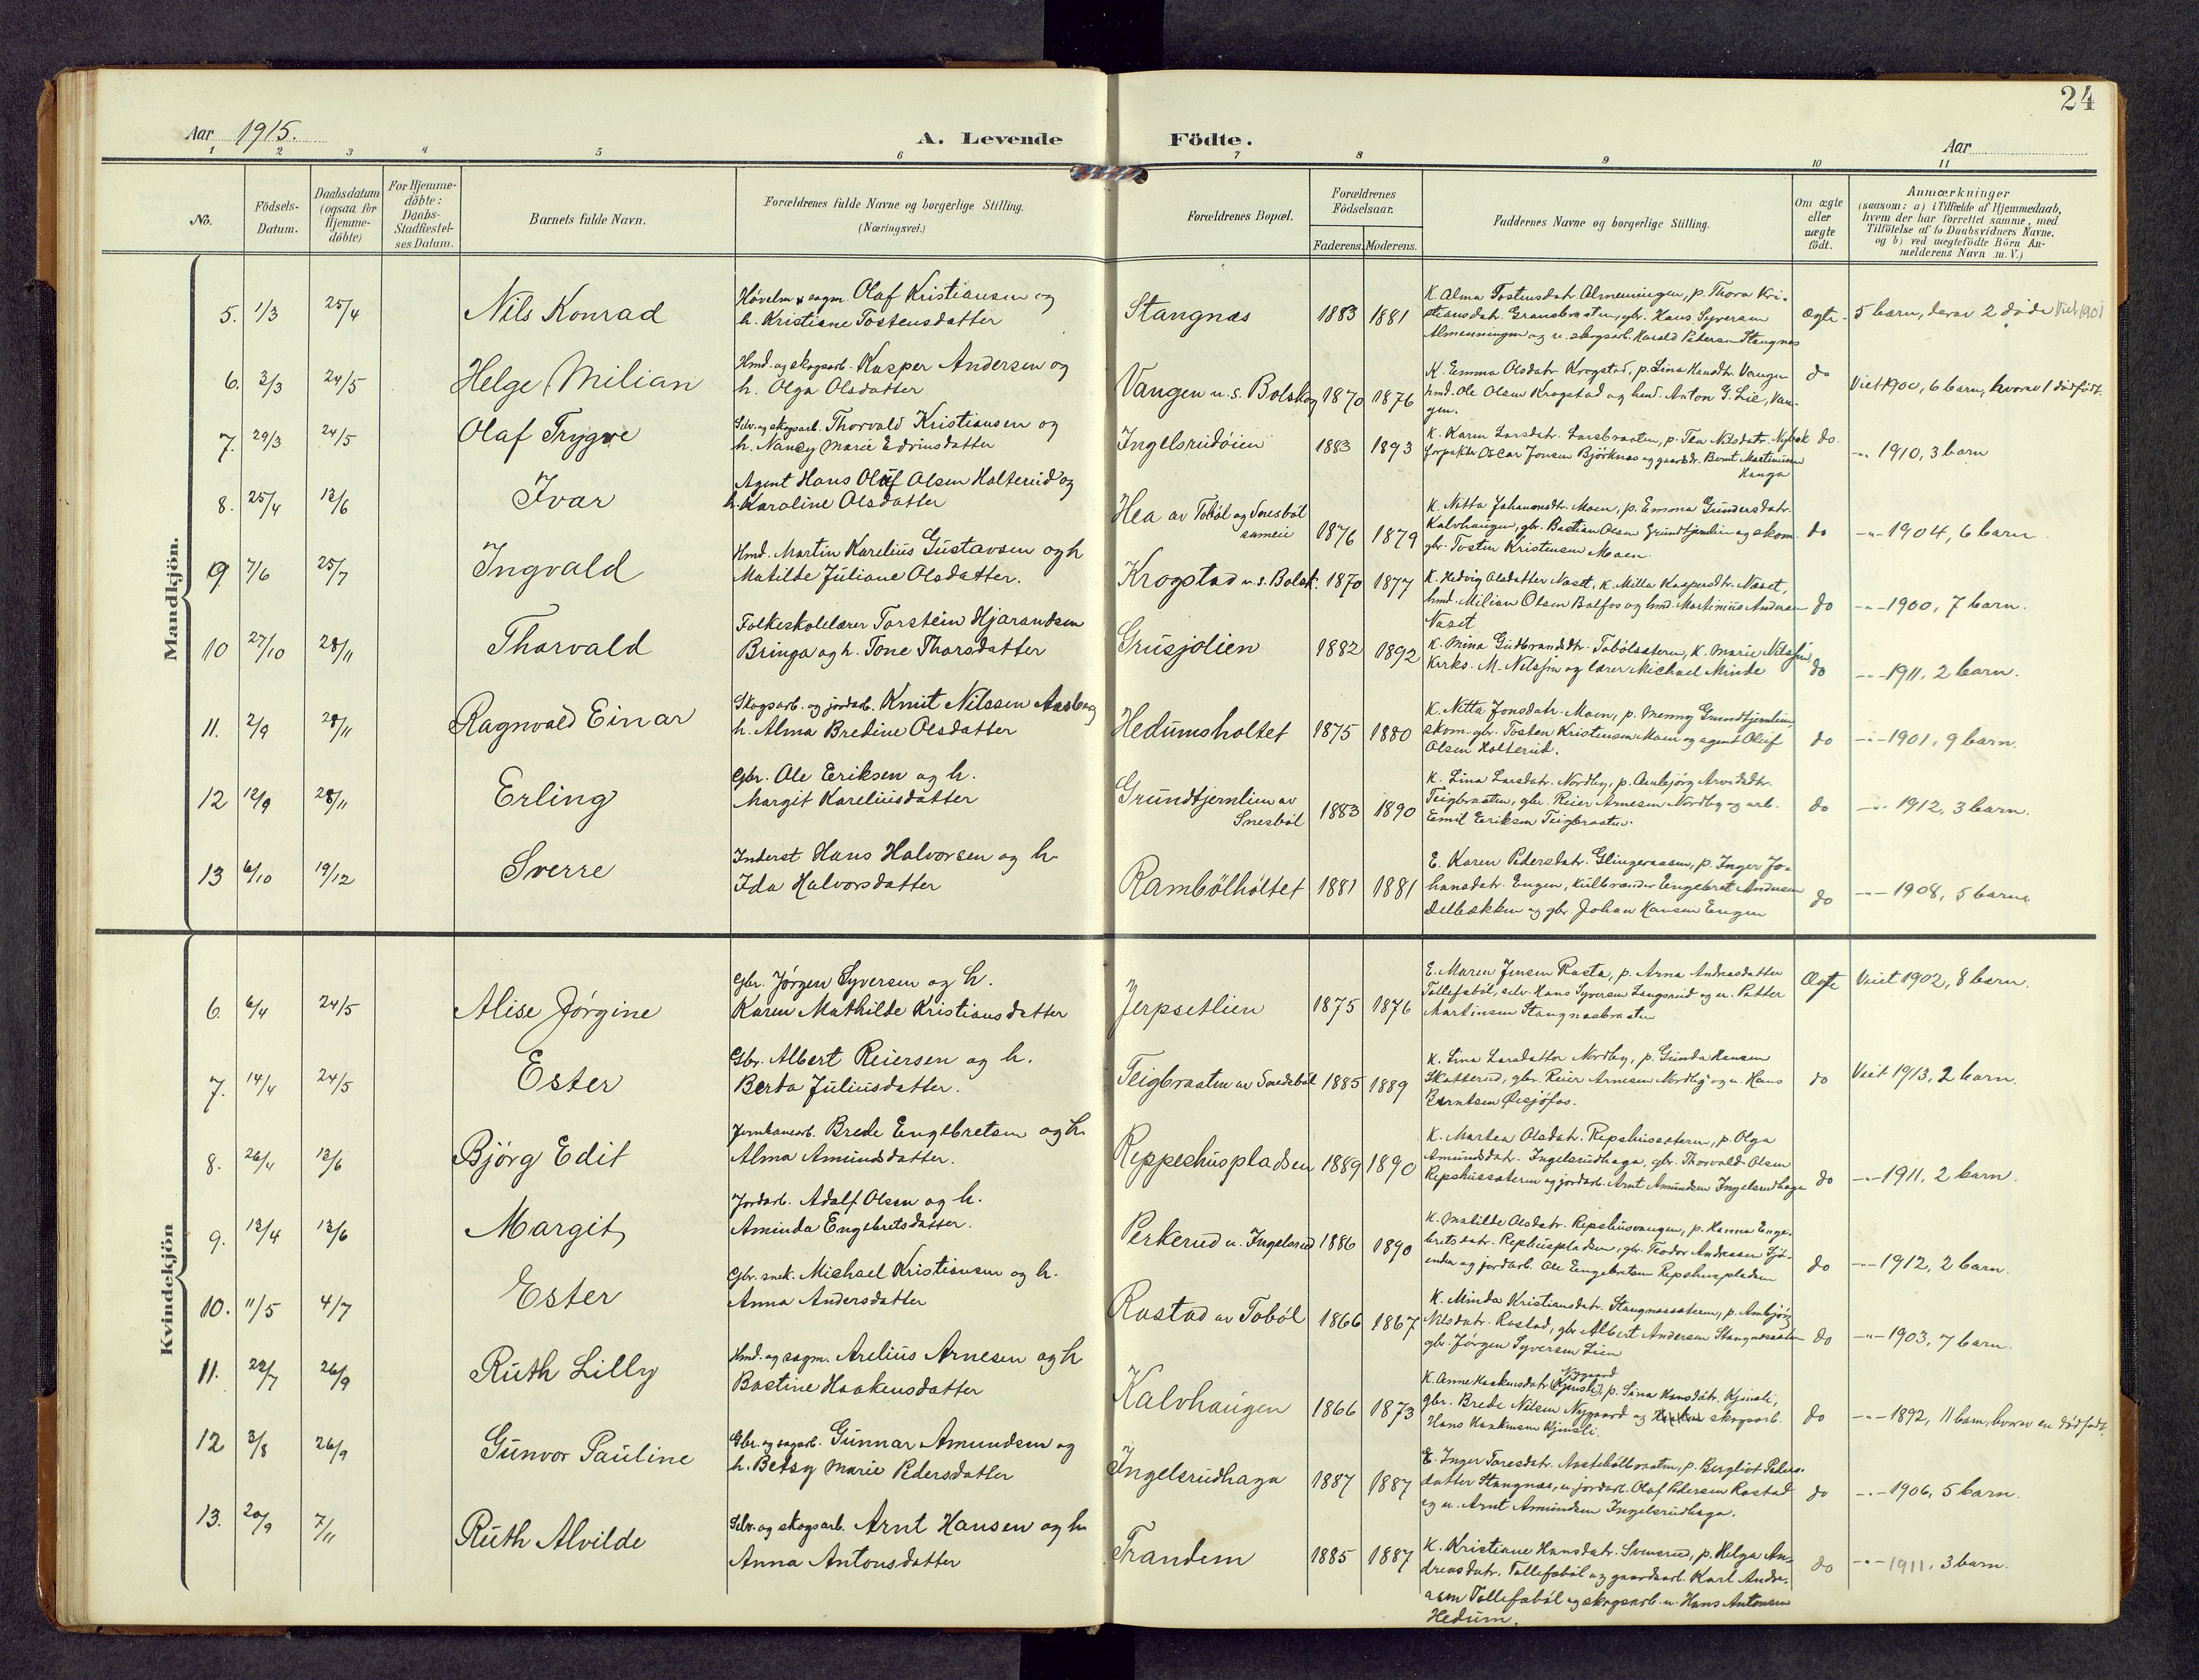 24
Aar 1915.
A. Levende Födte.
Aar
1 2 3 4 5 6 7 8 9 10 11
No.
Födsels-
Datum.
Daabsdatum
(ogsaa for
Hjemme-
döbte)
For Hjemme-
döbte:
Daabs-
Stadfæstel-
ses Datum.
Barnets fulde Navn.
Forældrenes fulde Navne og borgerlige Stilling.
(Næringsvei.)
Forældrenes Bopæl.
Forældrenes
Födselsaar.
Faderens. Moderens.
Faddernes Navne og borgerlige Stilling.
Om ægte
eller
uægte
födt.
Anmærkninger
(saasom: a) i Tilfælde af Hjemmedaab,
hvem der har forrettet samme, med
Tilföielse af to Daabsvidners Navne.
og b) ved uægtefödte Börn An-
melderens Navn m. V.)
Mandkjön.
5. 1/3 25/4 Nils Konrad
Hövelm & sagm. Olaf Kristiansen og
h. Kristiane Tostensdatter
Stangnæs 1883 1881
K. Alma Tostensdatr. Almenningen, p. Thora Kri-
stiansdatr. Granobraaten, gbr. Hans Syversen
Almenningen og u. skogsarb. Harald Pedersen Stangnæs
Ægte. 5 barn, derav 2 døde Viet 1901
6. 3/3 24/5 Helge Milian
Hmd. og skogsarb. Kasper Andersen og
h. Olga Olsdatter
Vangen u. s. Bolskog 1870 1876
K. Emma Olsdatr. Krogstad, p. Lina Hansdtr. Vangen
hmd. Ole Olsen Krogstad og hmd. Anton G. Lie, Van-
gen.
do Viet 1900, 6 barn, hvorav 1 dødfødt.
7. 29/3 24/5 Olaf Trygve
Selv. og skogsarb. Thorvald Kristiansen og
h. Nancy Marie Edvinsdatter
Ingelsrudöien 1883 1893
K. Karen Larsdatr. Larsbraaten, p. Tea Nilsdatr. Nybak
forpakter Oscar Jonsen Björknæs og gaardbr. Bernt Martinsen
Hauga
do. -"- 1910, 3 barn
8. 25/4 13/6 Ivar
Agent Hans Oluf Olsen Holterud og
h. Karoline Olsdatter
Hea av Toböl og Snesböl
sameie 1876 1879
K. Netta Johannesdtr. Moen, p. Emma Gundersdatr.
Kalvhaugen, gbr. Bastian Olsen Grundtjernlien og skom.
gbr. Tosten Kristensen Moen.
do -"- 1904, 6 barn
9 7/6 25/7 Ingvald
Hmd. Martin Karelius Gustavsen og h
Matilde Juliane Olsdatter.
Krogstad u. s. Bolsk. 1870 1877
K. Hedvig Olsdatter Næset, K. Milla Kaspersdtr. Næset,
hmd. Milian Olsen Bolfos og hmd. Martinius Andersen
Næset
do -"- 1900, 7 barn.
10 27/10 28/11 Thorvald
Folkeskolelærer Torstein Hjarandsen
Bringa og h. Tone Thorsdatter
Grusjölien 1882 1892
K. Mina Gudbrandsdtr. Tobölsæteren, K. Marie Nilssen
Kirks. M. Nilssen og lærer Michael Minde
do -"- 1911, 2 barn.
11. 2/9 28/11 Ragnvald Einar
Skogsarb. og jordarb. Knut Nilssen Aasberg
h. Alma Bredine Olsdatter
Hedumsholtet 1875 1880
K. Netta Jonsdatr. Moen, p. Menny Grundtjernlien,
skom. gbr. Tosten Kristensen Moen og agent Oluf
Olsen Holterud.
do -"- 1901, 9 barn.
12 12/9 28/11 Erling
Gbr. Ole Eriksen og h.
Margit Kareliusdatter
Grundtjernlien av
Snesböl 1883 1890
K. Lina Larsdatr. Nordby, p. Ambjørg Arvidsdtr.
Teigbraaten, gbr. Reier Arnesen Nordby og arb.
Emil Eriksen Teigbraaten.
do -"- 1912, 3 barn.
13 6/10 19/12 Sverre
Inderst Hans Halvorsen og h.
Ida Halvorsdatter
Rambölholtet 1881 1881
E. Karen Pedersdatr. Slingeraasen, p. Inger Jo-
hansdatr. Engen, kulbrænder Engebret Andersen
Delbækken og gbr. Johan Hansen Engen
do -"- 1908, 5 barn.
Kvindekjön
6. 6/4 24/5 Alise Jørgine
Gbr. Jørgen Syversen og h.
Karen Mathilde Kristiansdatter
Jerpsetlien 1875 1876
E. Maren Jensen Rasta, p. Arna Andreasdatter
Tollefsböl, selv. Hans Syversen Langsrud og u. Petter
Martinsen Stangnæsbraaten
Ægte Viet 1902, 8 barn.
7. 14/4 24/5 Ester
Gbr. Albert Reiersen og h.
Berta Juliusdatter.
Teigbraaten av Snedsböl 1885 1889
K. Lina Larsdatter Nordby, p. Gunda Hansen
Skatterud, gbr. Reier Arnesen Nordby og u. Hans
Berntsen Øisjøfos.
do Viet 1913, 2 barn.
8. 26/4 13/6 Bjørg Edit
Jernbanearb. Brede Engebretsen og h.
Alma Amundsdatter.
Reppeshuspladsen 1889 1890
K. Martea Olsdatr. Repshussæteren, p. Olga
Amundsdatr. Ingelsrudhaga, gbr. Thorvald Olsen
Repshussæteren og jordarb. Arnt Amundsen Ingelsrudhaga
do -"- 1911, 2 barn.
9. 13/4 13/6 Margit
Jordarb. Adolf Olsen og h.
Aminda Engebretsdatter.
Perkerud u. Ingelsrud 1886 1890
K. Matilde Olsdatr. Repshusvangen, p. Hanna Enge-
bretsdatr. Repshuspladsen, gbr. Teodor Andreasen Sjö-
enden og jordarb. Ole Engebretsen Repshuspladsen
do -"- 1912, 2 barn.
10. 11/5 4/7 Ester
Gbr. snek. Michael Kristiansen og h.
Anna Andersdatter
Rastad av Toböl 1866 1867
K. Minda Kristiansdatr. Stangnæssæteren, p. Ambjørg
Nilsdatr. Rastad, gbr. Albert Andersen Stangnæssæteren
gbr. Jørgen Syversen Lien
do -"- 1903, 7 barn.
11. 22/7 26/9 Ruth Lilly
Hmd. og sagm. Arelius Arnesen og h
Bastine Haakensdatter
Kalvhaugen 1866 1873
Nygaard
K. Anne Haakensdatr. (Kjensli), p. Lina Hansdatr. Kjensli,
gbr. Brede Nilsen Nygaard og skogsarb.
Hans Haakensen Kjensli.
do -"- 1892, 11 barn, hvorav en dødfødt.
12 3/8 26/9 Gunvor Pauline
Gbr. og sagarb. Gunnar Amundsen og
h. Betsy Marie Pedersdatter
Ingelsrudhaga 1887 1887
E. Inger Toresdatr. Aasteböllbraaten, p. Bergliot Peders-
datter Stangnæs, u. jordarb. Olaf Pedersen Rastad
og u. Arnt Amundsen Ingelsrudhaga.
do -"- 1906, 5 barn.
13. 20/9 7/11 Ruth Alvilde
Selv. og skogsarb. Arnt Hansen og h
Anna Antonsdatter
Trandem 1885 1887
K. Kristiane Hansdatr. Svensrud, p. Helga An-
dreasdatr. Tollefsböl og gaardsarb. Karl Andre-
asen Tollefsböl og skogsarb. u. Hans Antonsen
Hedum.
do -"- 1911. 3 barn.